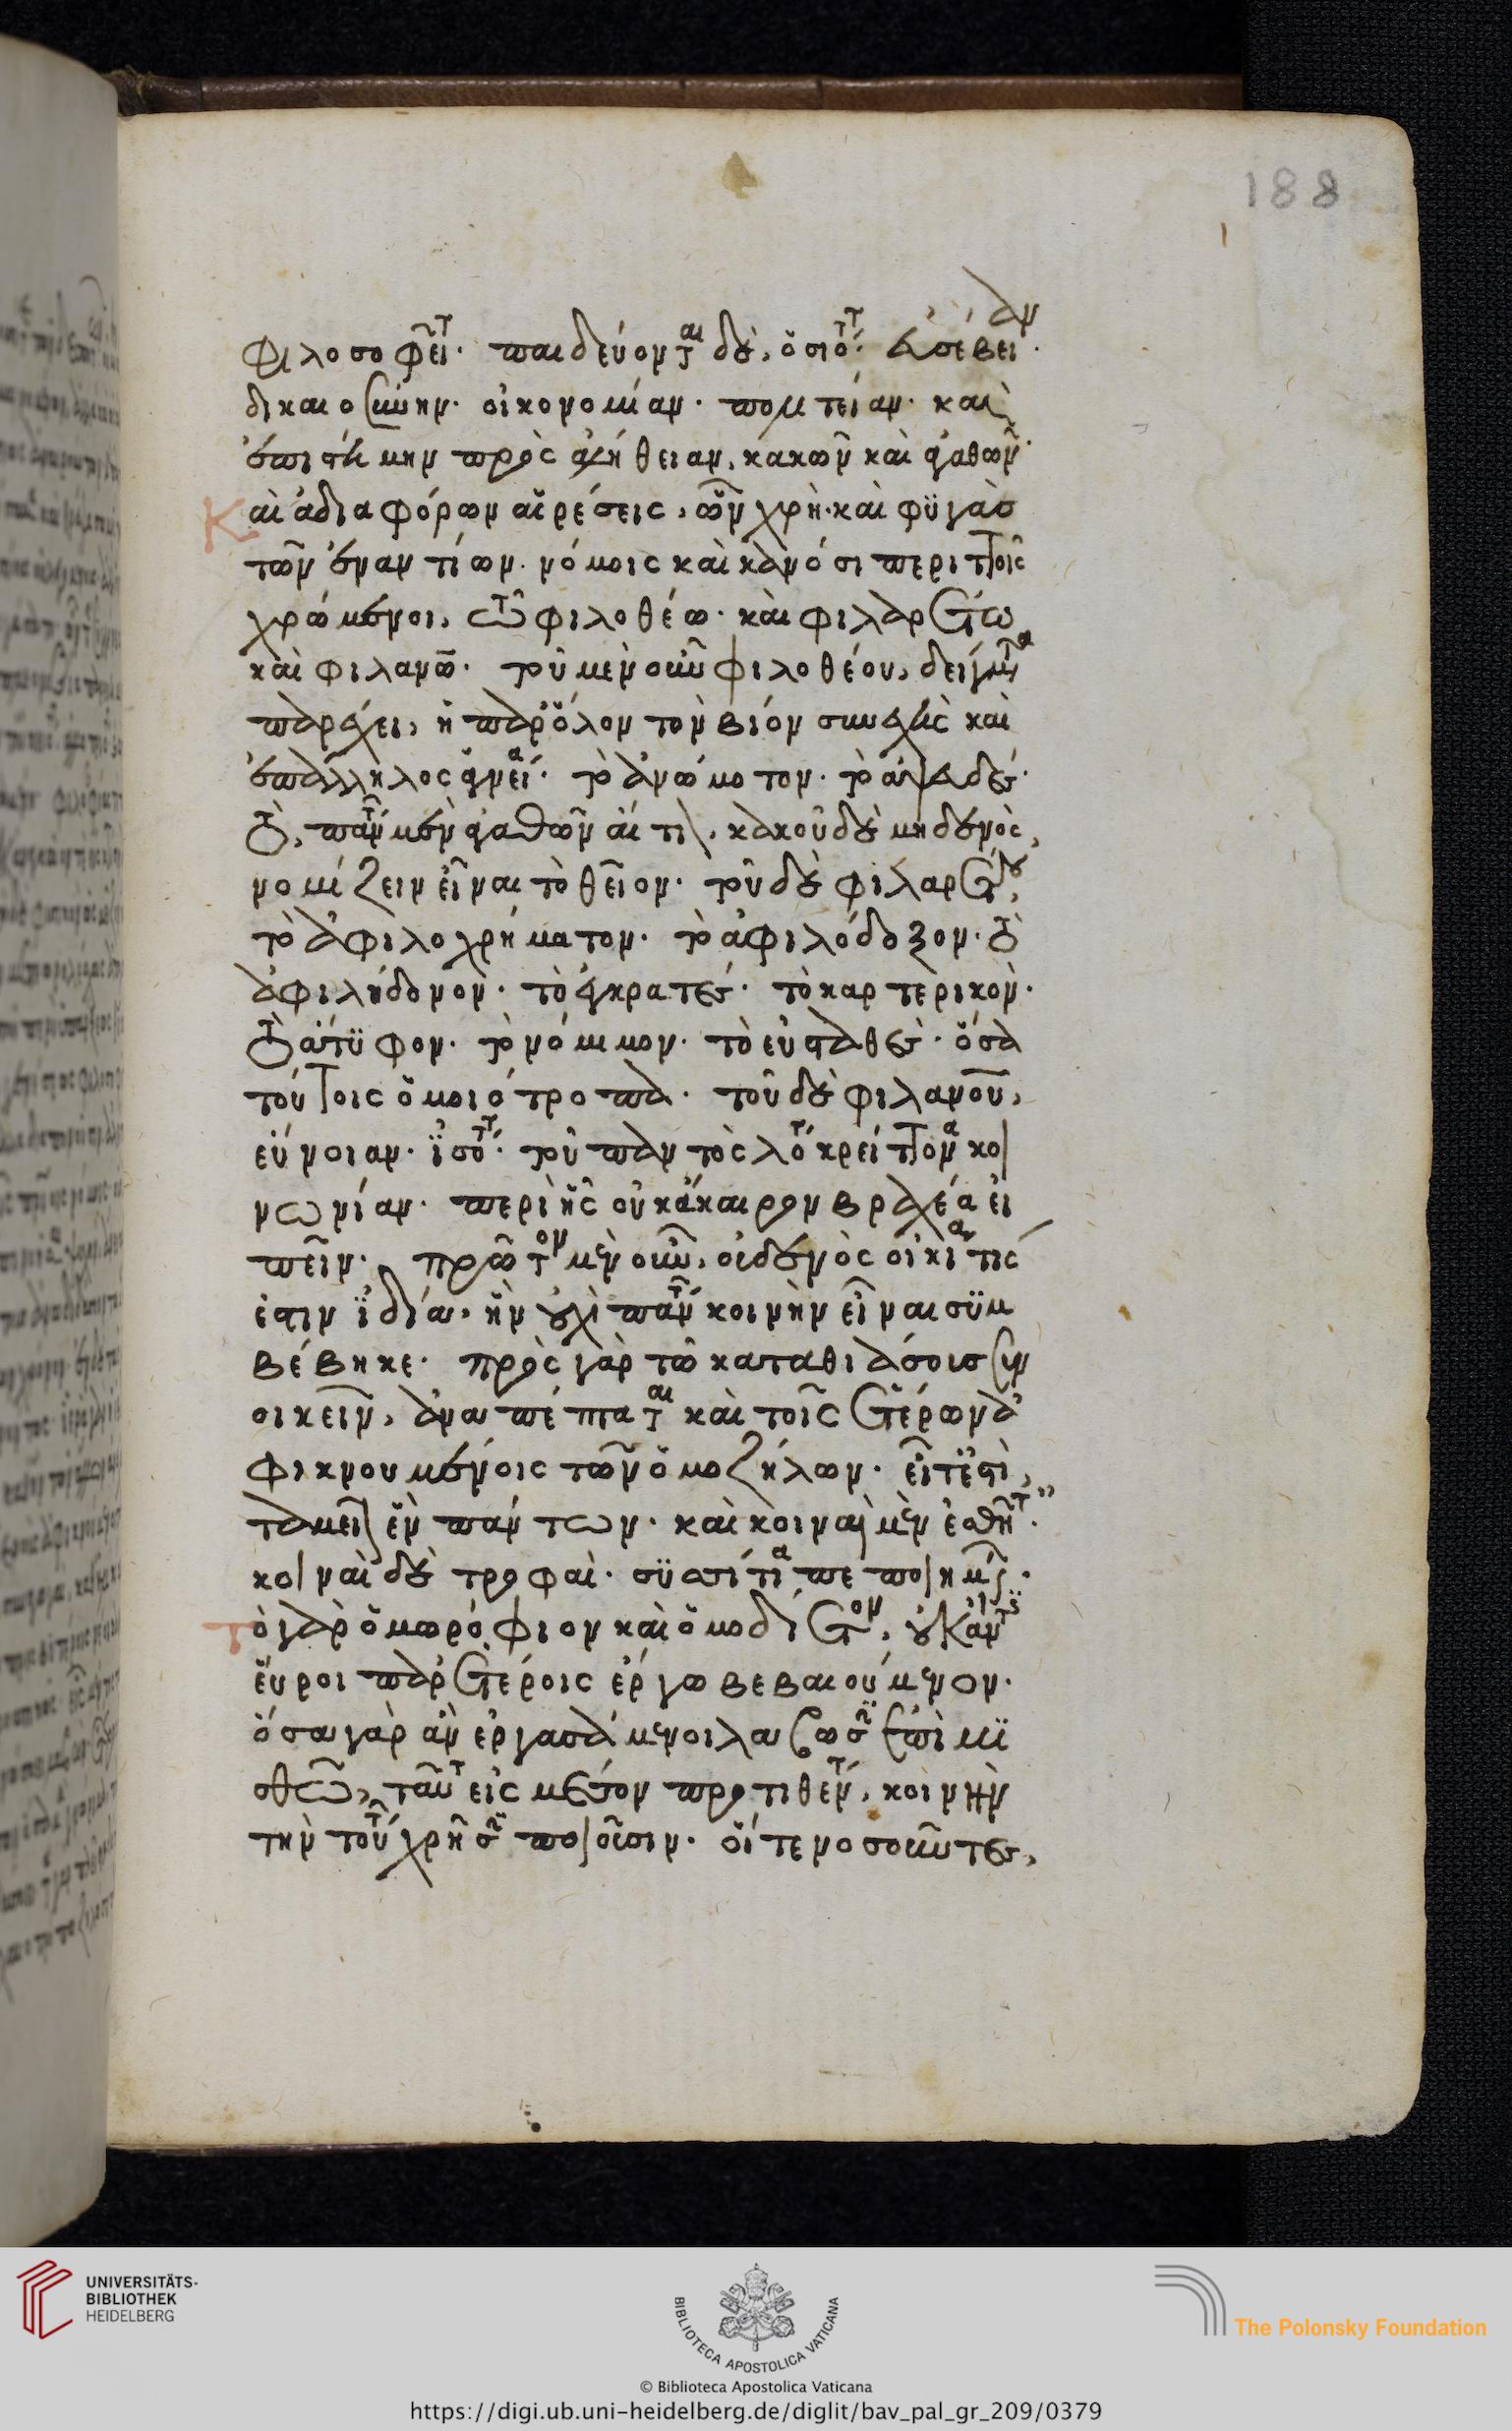 188
φιλοσοφεῖτ. παιδεύονται δὲ, ὁσιότητ. εὐσέβειαν.
δικαιοσύνην. οἰκονομίαν. πολιτείαν. καὶ
ἐπιστήμην πρὸς ἀλήθειαν, κακῶν καὶ ἀγαθῶν.
Καὶ ἀδιαφόρων αἱρέσεις, ὧν χρὴ. καὶ φυγὰσ
τῶν ἐναντίων. νόμοις καὶ κανόσι περιττοῖς
χρώμενοι, τῶ φιλοθέω. καὶ φιλαρέτω
καὶ φιλανω. τοῦ μὲν οὖν φιλοθέου, δείγματα
παρέχει, ἡ παρ' ὅλον τὸν βίον συνεχὴς καὶ
ἐπάλληλος ἁγνεία. τὸ ἀνώμοτον. τὸ ἀψευδές.
τὸ, πάντ μὲν ἀγαθῶν αἰτι, κακοῦ δὲ μηδενὸς,
νομίζειν εἶναι τὸ θεῖον. τοῦ δὲ φιλαρέτου,
τὸ ἀφιλοχρήματον. τὸ ἀφιλόδοξον. τὸ
ἀφιλήδονον. τὸ ἐγκρατές. τὸ καρτερικὸν.
τὸ ἄτυφον. τὸ νόμιμον. τὸ εὐσταθὲς. ὅσα
τούτοις ὁμοιότροπα. τοῦ δὲ φιλανου,
εὔνοιαν. ἰσότητ. τοῦ παντὸς λό κρείττονα κοι
νωνίαν. περὶ ἧς οὐκ ἄκαιρον βραχέα εἰ
πεῖν. πρῶτον μὲν οὖν, οὐδενὸς οἰκία τις
ἐστιν ἰδία, ἣν οὐχὶ πάντ κοινὴν εἶναι συμ
βέβηκε. πρὸς γὰρ τῶ κατα θιάσους συν
οικεῖν, ἀναπέπταται καὶ τοῖς ἑτέρων ἀ
φικνουμένοις τῶν ὁμοζήλων. εἶτ' ἐστὶ,
ταμεῖον ἓν πάντων. καὶ κοιναὶ μὲν ἐσθῆτ.
κοιναὶ δὲ τροφαὶ. συσσίτια πεποιημέν.
τὸ γὰρ ὁμωρόφιον καὶ ὁμοδίαιτον, οὐκ ἄν τις
εὕροι παρ' ἑτέροις ἔργω βεβαιούμενον.
ὅσα γὰρ ἂν ἐργασάμενοι λάβωσιν ἐπὶ μι
σθῶ, ταῦτ εἰς μέσον προτιθέντ, κοινὴν
τὴν τούτ χρῆσιν ποιοῦσιν. οἵ τε νοσοῦντες,
UNIVERSITÄTS-
BIBLIOTHEK
HEIDELBERG
BIBLIOTECA APOSTOLICA VATICANA
The Polonsky Foundation
© Biblioteca Apostolica Vaticana
https://digi.ub.uni-heidelberg.de/diglit/bav_pal_gr_209/0379